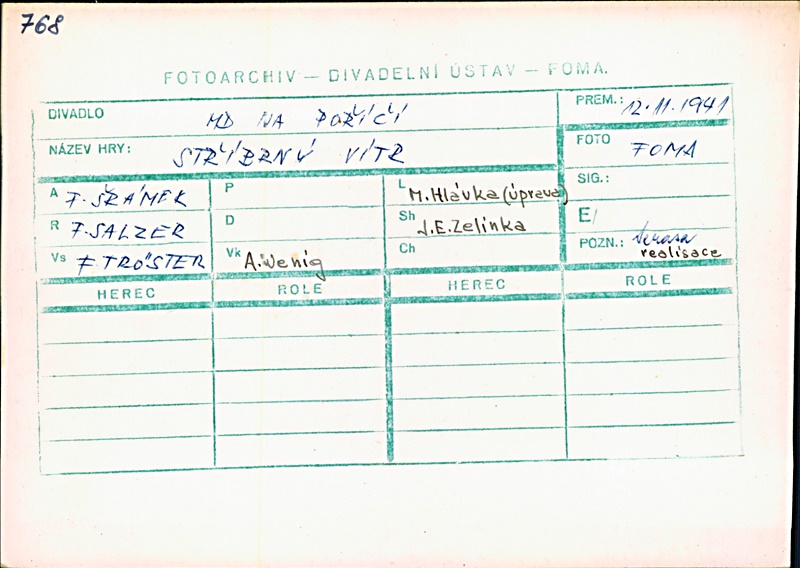 768
FOTOARCHIV – DIVADELNÍ ÚSTAV – FOMA.
DIVADLO MD NA POŘÍČÍ PREM.: 12.11.1941
NÁZEV HRY: STŘÍBRNÝ VÍTR FOTO FOMA
A F. ŠRÁMEK P L M. Hlávka (úprava) SIG.:
R F. SALZER D Sh J.E. Zelinka E/
Vs F. TRÖSTER Vk A. Wenig Ch POZN.: realisace
HEREC ROLE HEREC ROLE